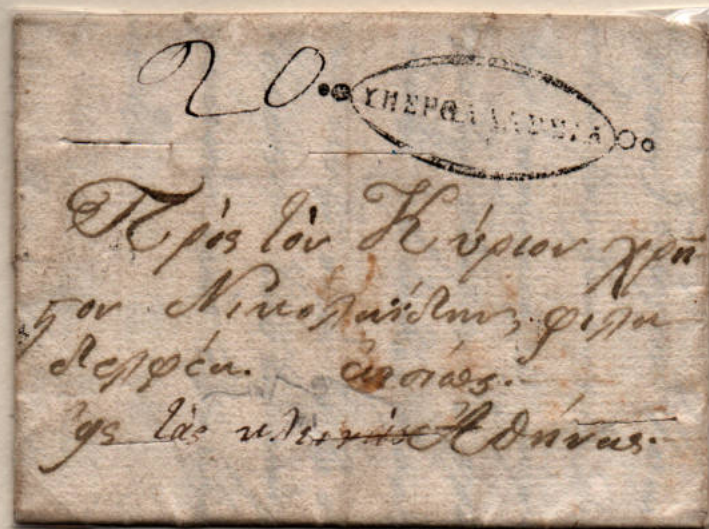 20
ΥΠΕΡΘΑΛΑΣΣΙΑ
Πρὸς τὸν Κύριον χρῆ
στον Νικολαΐδην, φιλα
δελφέα.
ἦς τὰς κλεινὰς Ἀθήνας.